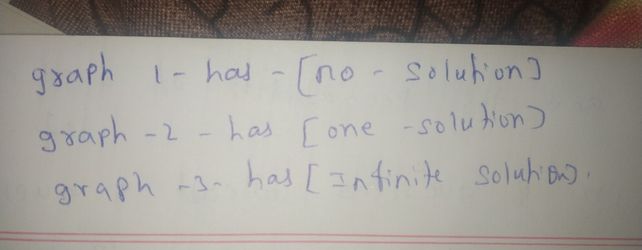 graph 1- has - [no - solution]
graph -2 - has [one -solution]
graph -3- has [Infinite solution].